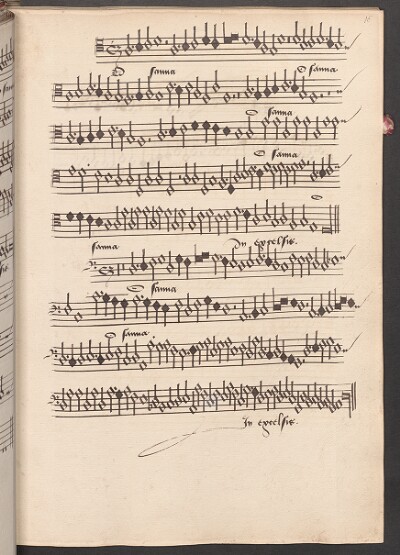 16
O sanna O sanna
O sanna
O sanna
O
sanna In excelsis.
O sanna
O sanna
In excelsis.